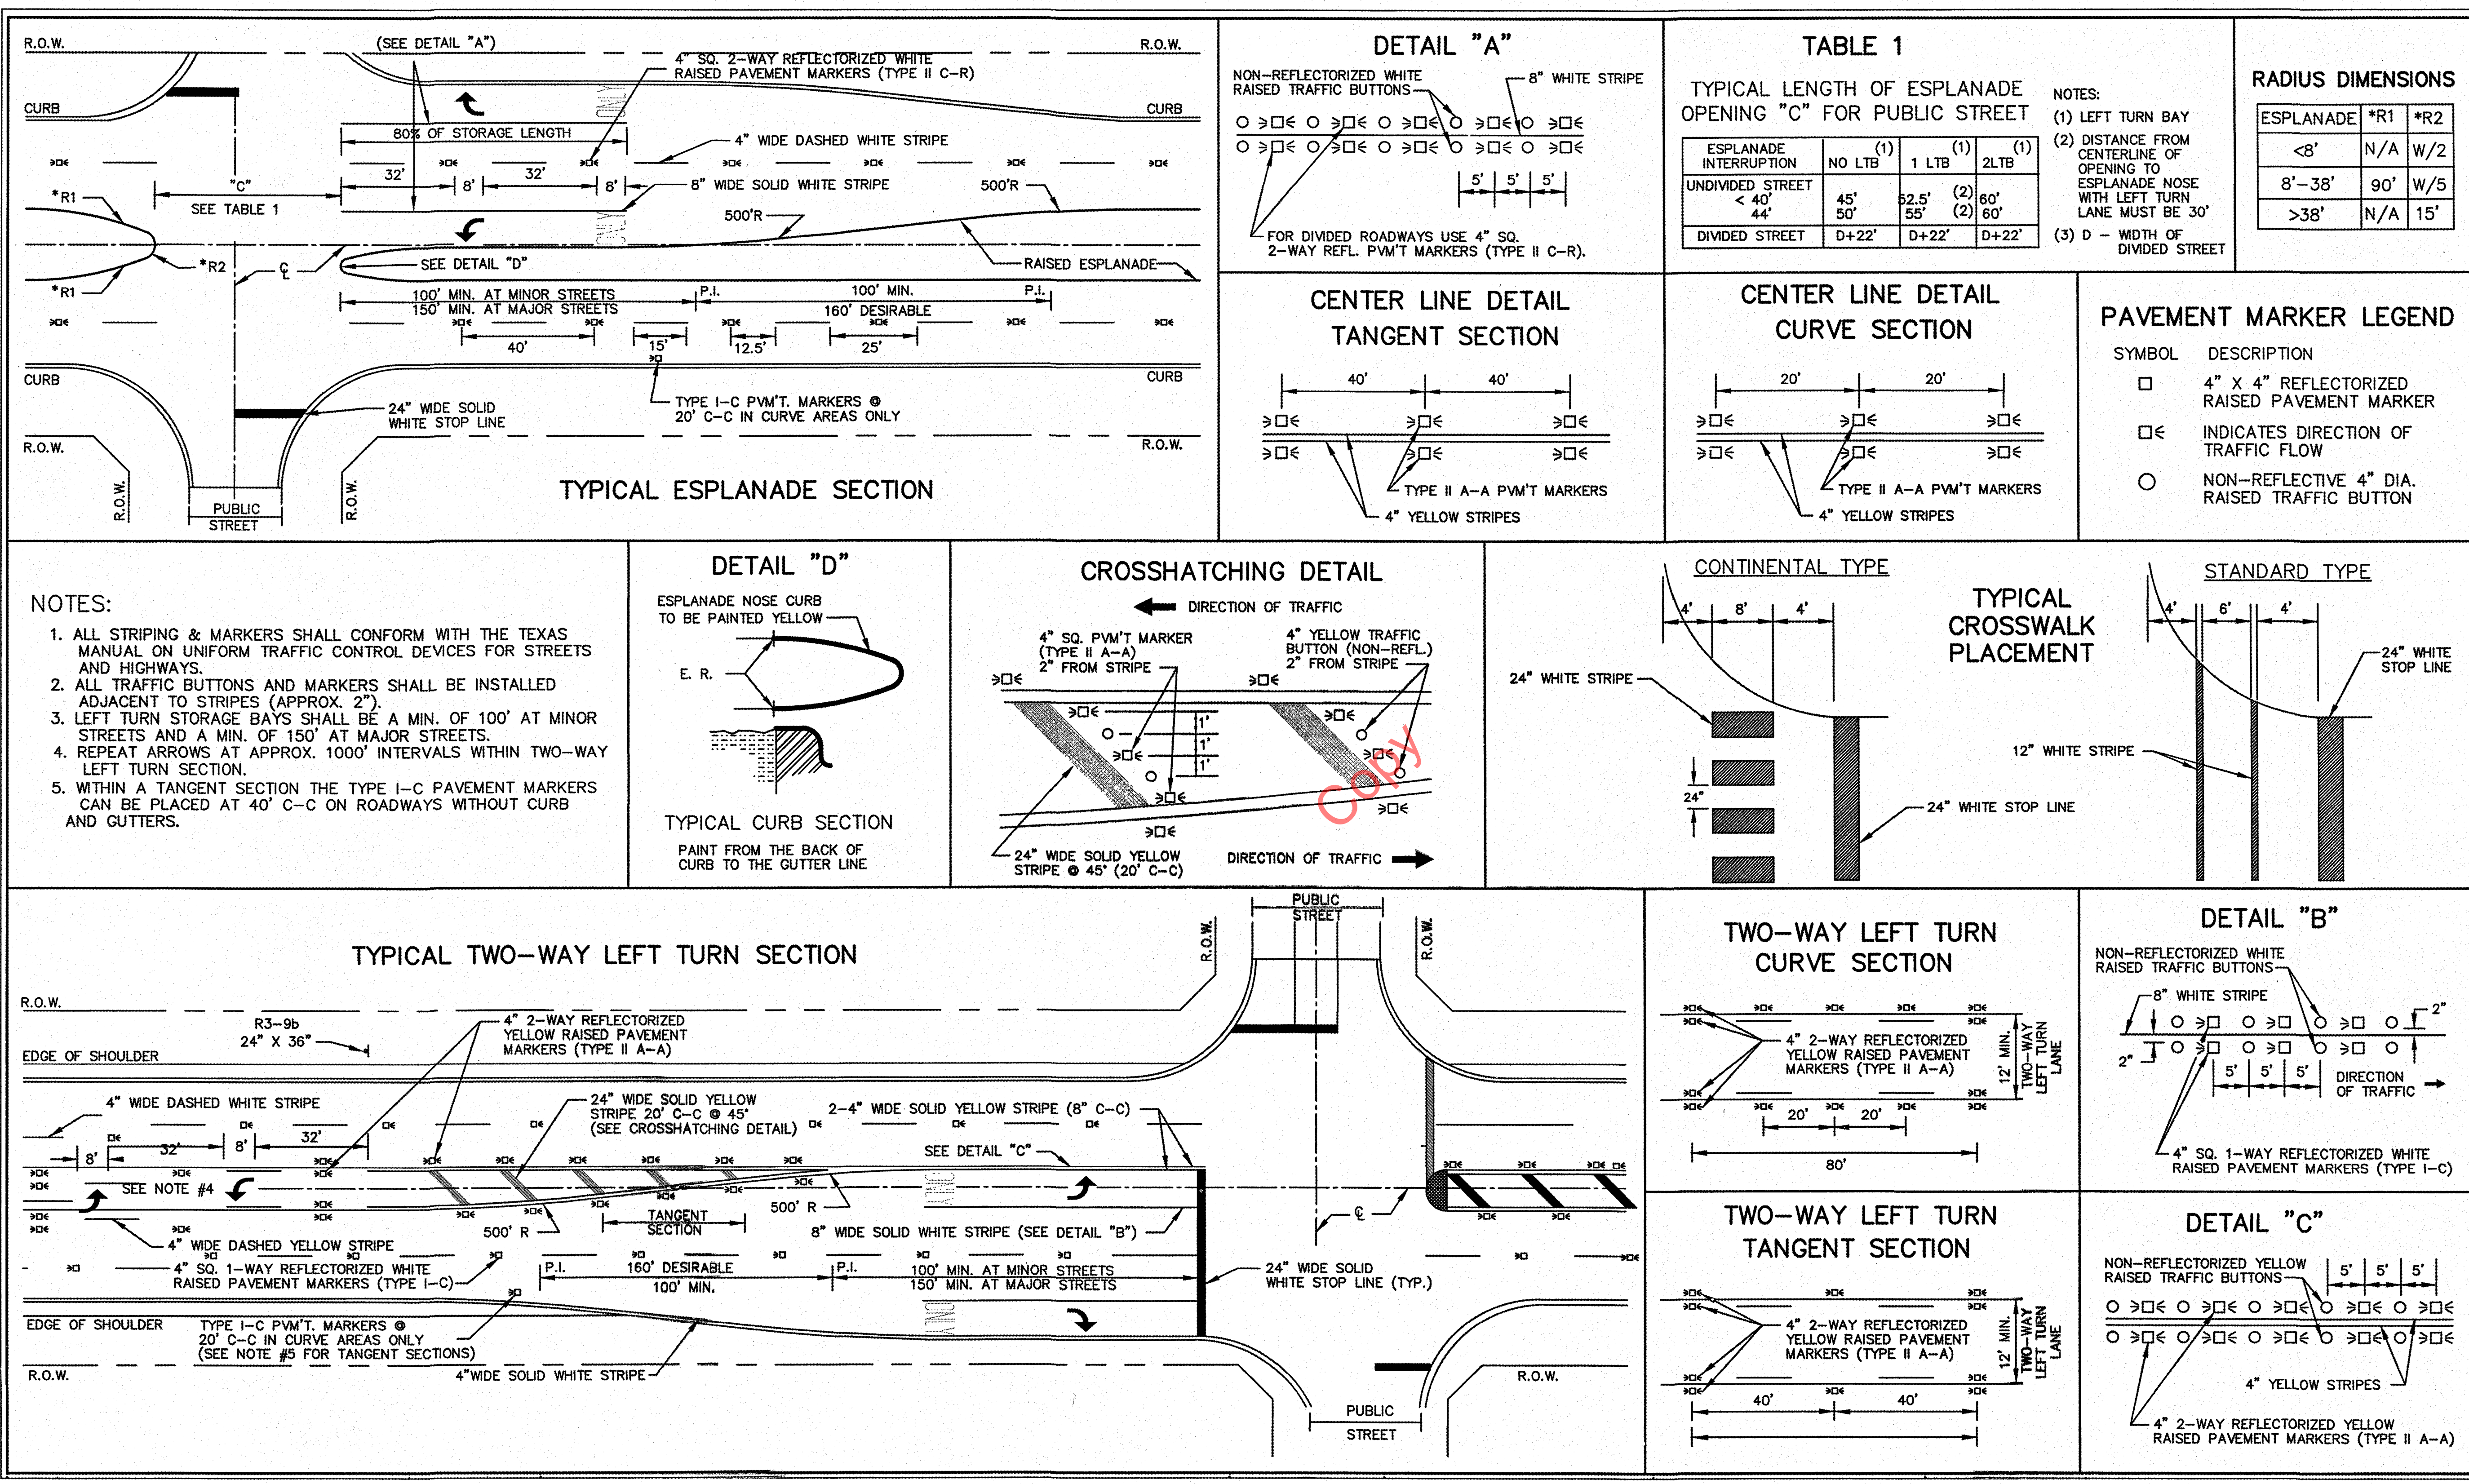 R.O.W.
(SEE DETAIL "A")
R.O.W.
4" SQ. 2-WAY REFLECTORIZED WHITE
RAISED PAVEMENT MARKERS (TYPE II C-R)
CURB
CURB
ONLY
80% OF STORAGE LENGTH
4" WIDE DASHED WHITE STRIPE
32'
8'
32'
8'
8" WIDE SOLID WHITE STRIPE
500'R
*R1
"C"
SEE TABLE 1
500'R
ONLY
*R2
℄
SEE DETAIL "D"
RAISED ESPLANADE
*R1
100' MIN. AT MINOR STREETS
150' MIN. AT MAJOR STREETS
P.I.
100' MIN.
160' DESIRABLE
P.I.
40'
15'
12.5'
25'
CURB
CURB
24" WIDE SOLID
WHITE STOP LINE
TYPE I-C PVM'T. MARKERS @
20' C-C IN CURVE AREAS ONLY
R.O.W.
R.O.W.
R.O.W.
R.O.W.
PUBLIC
STREET
TYPICAL ESPLANADE SECTION
DETAIL "A"
NON-REFLECTORIZED WHITE
RAISED TRAFFIC BUTTONS
8" WHITE STRIPE
5' 5' 5'
FOR DIVIDED ROADWAYS USE 4" SQ.
2-WAY REFL. PVM'T MARKERS (TYPE II C-R).
TABLE 1
TYPICAL LENGTH OF ESPLANADE
OPENING "C" FOR PUBLIC STREET
ESPLANADE INTERRUPTION NO LTB (1) 1 LTB (1) 2LTB (1)
UNDIVIDED STREET
< 40' 45' 52.5' (2) 60'
44' 50' 55' (2) 60'
DIVIDED STREET D+22' D+22' D+22'
NOTES:
(1) LEFT TURN BAY
(2) DISTANCE FROM
CENTERLINE OF
OPENING TO
ESPLANADE NOSE
WITH LEFT TURN
LANE MUST BE 30'
(3) D - WIDTH OF
DIVIDED STREET
RADIUS DIMENSIONS
ESPLANADE *R1 *R2
<8' N/A W/2
8'-38' 90' W/5
>38' N/A 15'
CENTER LINE DETAIL
TANGENT SECTION
40' 40'
TYPE II A-A PVM'T MARKERS
4" YELLOW STRIPES
CENTER LINE DETAIL
CURVE SECTION
20' 20'
TYPE II A-A PVM'T MARKERS
4" YELLOW STRIPES
PAVEMENT MARKER LEGEND
SYMBOL DESCRIPTION
4" X 4" REFLECTORIZED
RAISED PAVEMENT MARKER
INDICATES DIRECTION OF
TRAFFIC FLOW
NON-REFLECTIVE 4" DIA.
RAISED TRAFFIC BUTTON
NOTES:
1. ALL STRIPING & MARKERS SHALL CONFORM WITH THE TEXAS
MANUAL ON UNIFORM TRAFFIC CONTROL DEVICES FOR STREETS
AND HIGHWAYS.
2. ALL TRAFFIC BUTTONS AND MARKERS SHALL BE INSTALLED
ADJACENT TO STRIPES (APPROX. 2").
3. LEFT TURN STORAGE BAYS SHALL BE A MIN. OF 100' AT MINOR
STREETS AND A MIN. OF 150' AT MAJOR STREETS.
4. REPEAT ARROWS AT APPROX. 1000' INTERVALS WITHIN TWO-WAY
LEFT TURN SECTION.
5. WITHIN A TANGENT SECTION THE TYPE I-C PAVEMENT MARKERS
CAN BE PLACED AT 40' C-C ON ROADWAYS WITHOUT CURB
AND GUTTERS.
DETAIL "D"
ESPLANADE NOSE CURB
TO BE PAINTED YELLOW
E. R.
TYPICAL CURB SECTION
PAINT FROM THE BACK OF
CURB TO THE GUTTER LINE
CROSSHATCHING DETAIL
DIRECTION OF TRAFFIC
4" SQ. PVM'T MARKER
(TYPE II A-A)
2" FROM STRIPE
4" YELLOW TRAFFIC
BUTTON (NON-REFL.)
2" FROM STRIPE
1'
1'
1'
Copy
24" WIDE SOLID YELLOW
STRIPE @ 45° (20' C-C)
DIRECTION OF TRAFFIC
CONTINENTAL TYPE
4' 8' 4'
24" WHITE STRIPE
24"
24" WHITE STOP LINE
TYPICAL
CROSSWALK
PLACEMENT
STANDARD TYPE
4' 6' 4'
24" WHITE
STOP LINE
12" WHITE STRIPE
TYPICAL TWO-WAY LEFT TURN SECTION
PUBLIC
STREET
R.O.W.
R.O.W.
R.O.W.
R3-9b
24" X 36"
4" 2-WAY REFLECTORIZED
YELLOW RAISED PAVEMENT
MARKERS (TYPE II A-A)
EDGE OF SHOULDER
4" WIDE DASHED WHITE STRIPE
24" WIDE SOLID YELLOW
STRIPE 20' C-C @ 45°
(SEE CROSSHATCHING DETAIL)
2-4" WIDE SOLID YELLOW STRIPE (8" C-C)
8'
32'
8'
32'
SEE DETAIL "C"
SEE NOTE #4
ONLY
500' R
TANGENT
SECTION
500' R
8" WIDE SOLID WHITE STRIPE (SEE DETAIL "B")
℄
4" WIDE DASHED YELLOW STRIPE
4" SQ. 1-WAY REFLECTORIZED WHITE
RAISED PAVEMENT MARKERS (TYPE I-C)
P.I.
160' DESIRABLE
100' MIN.
P.I.
100' MIN. AT MINOR STREETS
150' MIN. AT MAJOR STREETS
24" WIDE SOLID
WHITE STOP LINE (TYP.)
ONLY
EDGE OF SHOULDER
TYPE I-C PVM'T. MARKERS @
20' C-C IN CURVE AREAS ONLY
(SEE NOTE #5 FOR TANGENT SECTIONS)
4"WIDE SOLID WHITE STRIPE
R.O.W.
R.O.W.
PUBLIC
STREET
TWO-WAY LEFT TURN
CURVE SECTION
4" 2-WAY REFLECTORIZED
YELLOW RAISED PAVEMENT
MARKERS (TYPE II A-A)
12' MIN.
TWO-WAY
LEFT TURN
LANE
20' 20'
80'
TWO-WAY LEFT TURN
TANGENT SECTION
4" 2-WAY REFLECTORIZED
YELLOW RAISED PAVEMENT
MARKERS (TYPE II A-A)
12' MIN.
TWO-WAY
LEFT TURN
LANE
40' 40'
DETAIL "B"
NON-REFLECTORIZED WHITE
RAISED TRAFFIC BUTTONS
8" WHITE STRIPE
2"
2"
5' 5' 5'
DIRECTION
OF TRAFFIC
4" SQ. 1-WAY REFLECTORIZED WHITE
RAISED PAVEMENT MARKERS (TYPE I-C)
DETAIL "C"
NON-REFLECTORIZED YELLOW
RAISED TRAFFIC BUTTONS
5' 5' 5'
4" YELLOW STRIPES
4" 2-WAY REFLECTORIZED YELLOW
RAISED PAVEMENT MARKERS (TYPE II A-A)